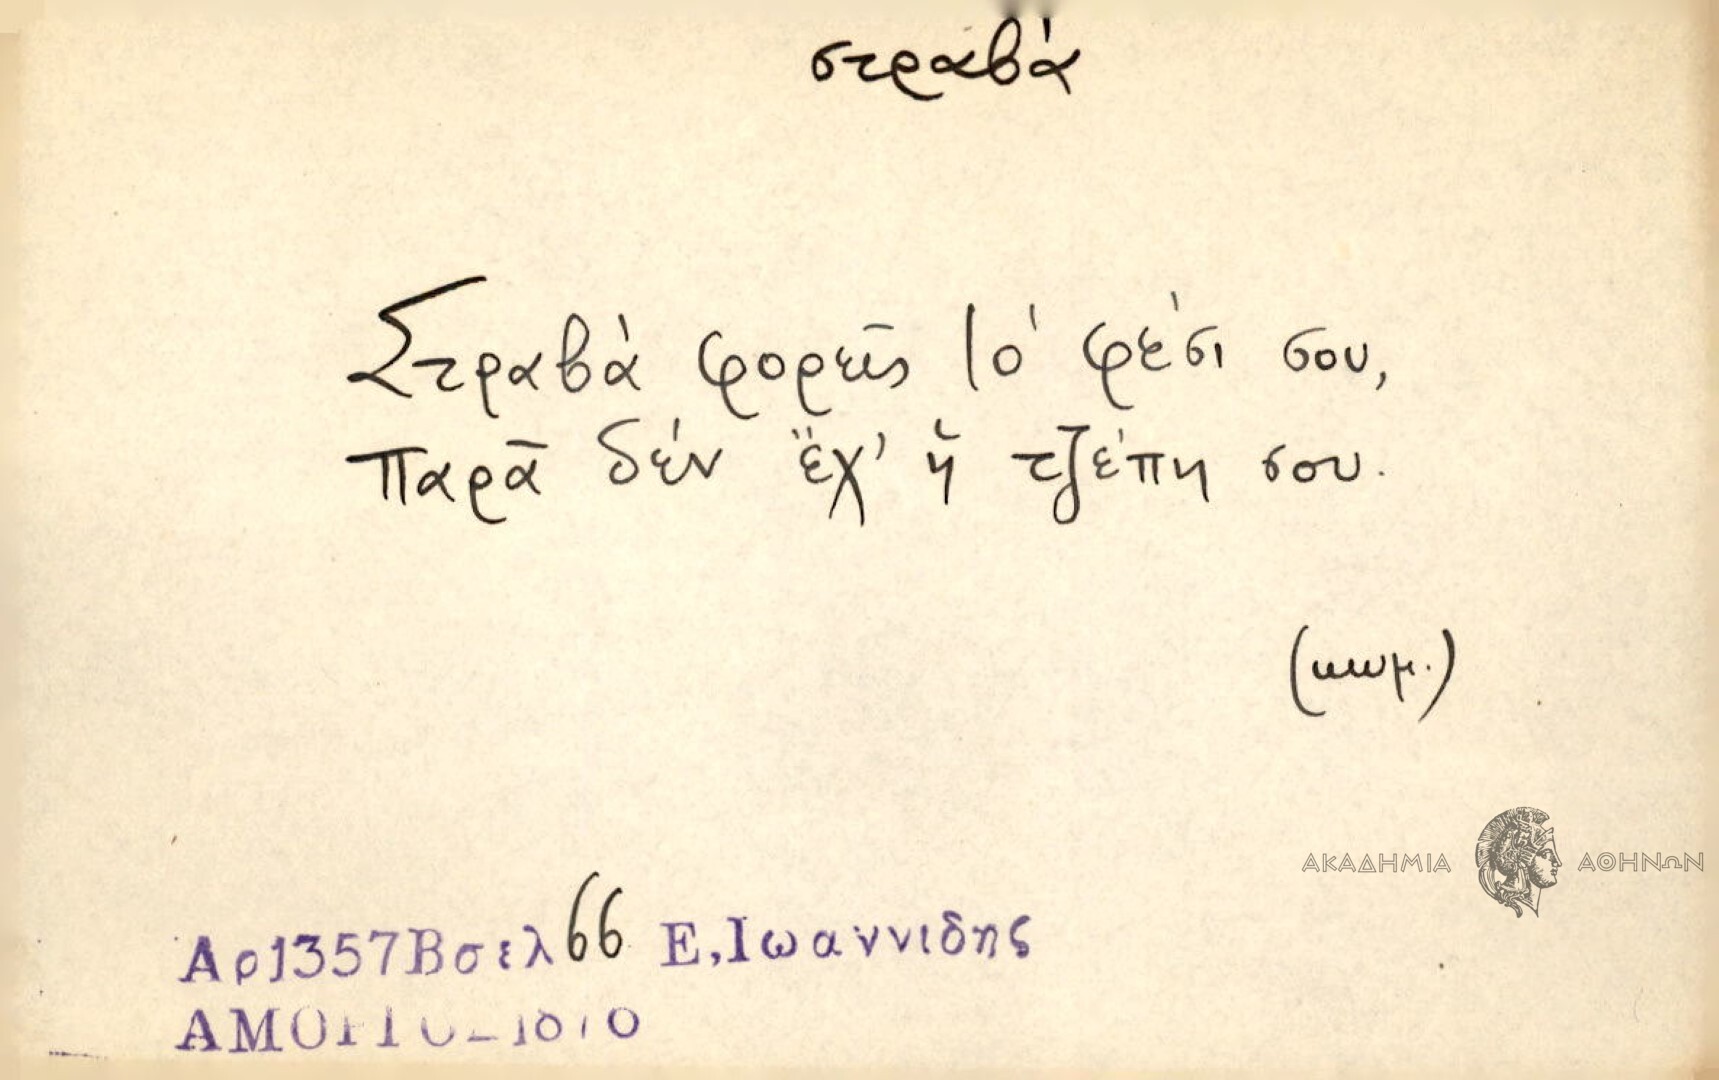 στραβά
Στραβά φορεῖς τό φέσι σου,
παρᾶ δέν ἔχ' ἡ τζέπη σου.
(κωμ.)
ΑΚΑΔΗΜΙΑ ΑΘΗΝΩΝ
Αρ1357Βσελ 66 Ε,Ιωαννιδης